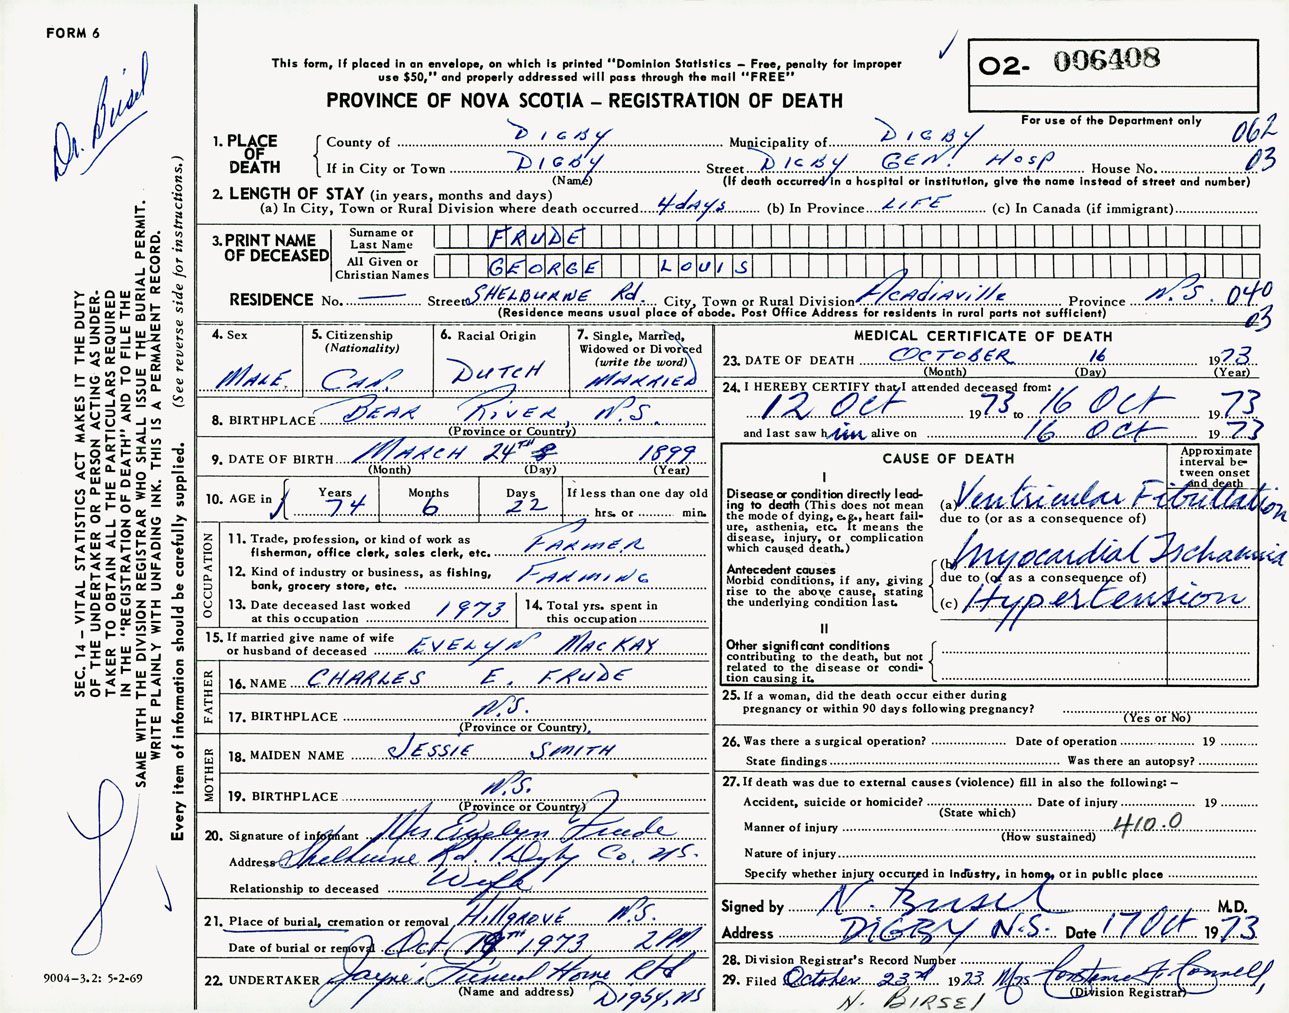 FORM 6
Dr. Birsel
SEC. 14 – VITAL STATISTICS ACT MAKES IT THE DUTY
OF THE UNDERTAKER OR PERSON ACTING AS UNDER-
TAKER TO OBTAIN ALL THE PARTICULARS REQUIRED
IN THE "REGISTRATION OF DEATH" AND TO FILE THE
SAME WITH THE DIVISION REGISTRAR WHO SHALL ISSUE THE BURIAL PERMIT.
WRITE PLAINLY WITH UNFADING INK. THIS IS A PERMANENT RECORD.
Every item of information should be carefully supplied. (See reverse side for instructions.)
9004–3.2: 5-2-69
This form, if placed in an envelope, on which is printed "Dominion Statistics – Free, penalty for improper
use $50," and properly addressed will pass through the mail "FREE"
PROVINCE OF NOVA SCOTIA – REGISTRATION OF DEATH
02- 006408
For use of the Department only
062
03
1. PLACE OF DEATH
County of DIGBY Municipality of DIGBY
If in City or Town DIGBY Street DIGBY GEN. HOSP House No.
(Name) (If death occurred in a hospital or institution, give the name instead of street and number)
2. LENGTH OF STAY (in years, months and days)
(a) In City, Town or Rural Division where death occurred 4 days (b) In Province LIFE (c) In Canada (if immigrant)
3. PRINT NAME OF DECEASED
Surname or Last Name FRUDE
All Given or Christian Names GEORGE LOUIS
RESIDENCE No. — Street SHELBURNE Rd. City, Town or Rural Division Acadiaville Province N.S. 040
(Residence means usual place of abode. Post Office Address for residents in rural parts not sufficient) 03
4. Sex MALE
5. Citizenship (Nationality) CAN.
6. Racial Origin DUTCH
7. Single, Married, Widowed or Divorced (write the word) MARRIED
8. BIRTHPLACE BEAR RIVER, N.S.
(Province or Country)
9. DATE OF BIRTH MARCH 24TH 1899
(Month) (Day) (Year)
10. AGE in Years 74 Months 6 Days 22 If less than one day old hrs. or min.
OCCUPATION
11. Trade, profession, or kind of work as
fisherman, office clerk, sales clerk, etc. FARMER
12. Kind of industry or business, as fishing,
bank, grocery store, etc. FARMING
13. Date deceased last worked at this occupation 1973
14. Total yrs. spent in this occupation
15. If married give name of wife
or husband of deceased EVELYN MACKAY
FATHER
16. NAME CHARLES E. FRUDE
17. BIRTHPLACE N.S.
(Province or Country)
MOTHER
18. MAIDEN NAME JESSIE SMITH
19. BIRTHPLACE N.S.
(Province or Country)
20. Signature of informant Mrs Evelyn Frude
Address Shelburne Rd. Digby Co. N.S.
Relationship to deceased Wife
21. Place of burial, cremation or removal HILLGROVE N.S.
Date of burial or removal Oct 19th 1973 2 PM
22. UNDERTAKER Jayne's Funeral Home Ltd
(Name and address) DIGBY, NS
MEDICAL CERTIFICATE OF DEATH
23. DATE OF DEATH OCTOBER 16 1973
(Month) (Day) (Year)
24. I HEREBY CERTIFY that I attended deceased from:
12 Oct 1973 to 16 Oct 1973
and last saw him alive on 16 OCT 1973
CAUSE OF DEATH
Approximate interval between onset and death
I
Disease or condition directly lead-
ing to death (This does not mean
the mode of dying, e.g., heart fail-
ure, asthenia, etc. It means the
disease, injury, or complication
which caused death.)
(a) Ventricular Fibrillation
due to (or as a consequence of)
Antecedent causes
Morbid conditions, if any, giving
rise to the above cause, stating
the underlying condition last.
(b) Myocardial Ischaemia
due to (or as a consequence of)
(c) Hypertension
II
Other significant conditions
contributing to the death, but not
related to the disease or condi-
tion causing it.
25. If a woman, did the death occur either during
pregnancy or within 90 days following pregnancy?
(Yes or No)
26. Was there a surgical operation? Date of operation 19
State findings Was there an autopsy?
27. If death was due to external causes (violence) fill in also the following: –
Accident, suicide or homicide? Date of injury 19
(State which)
Manner of injury 410.0
(How sustained)
Nature of injury
Specify whether injury occurred in industry, in home, or in public place
Signed by N. Birsel M.D.
Address DIGBY N.S. Date 17 Oct 1973
28. Division Registrar's Record Number
29. Filed October 23rd 1973 Mrs Constance Connell,
(Division Registrar)
N. BIRSEL